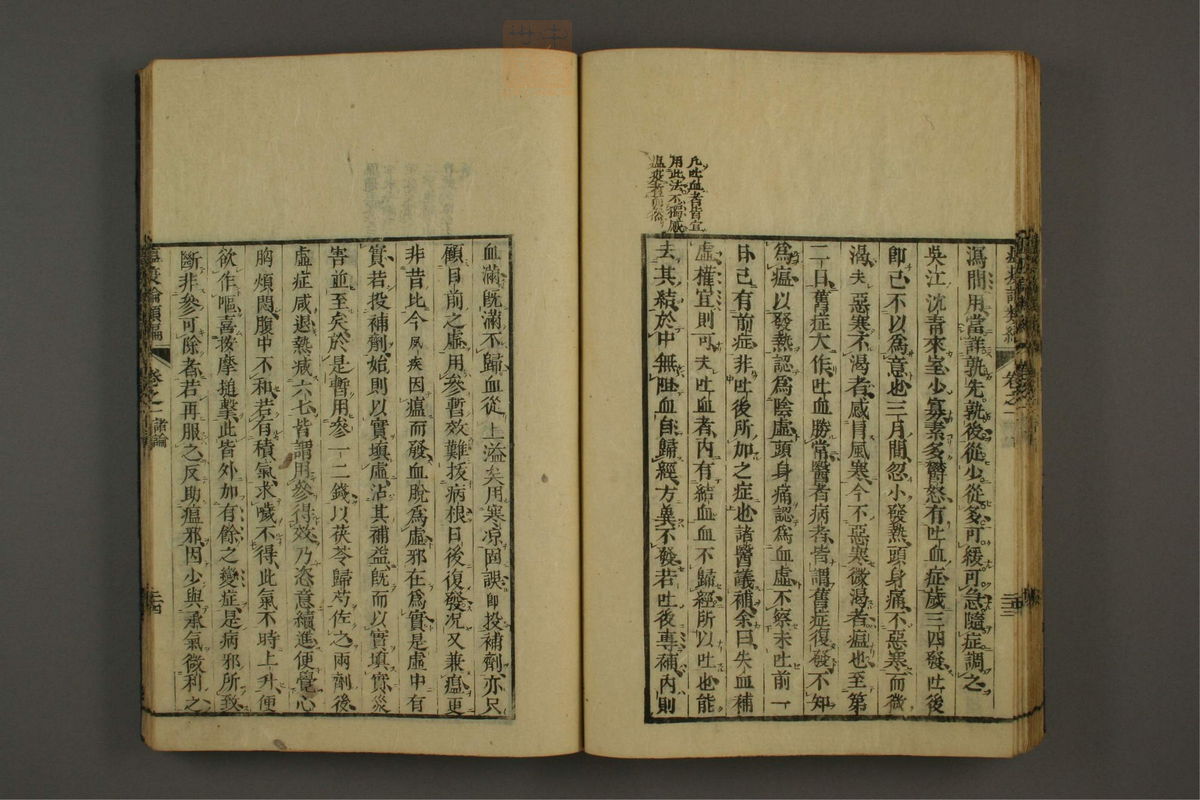 凡吐血者皆宜
用此法不獨感
瘟疫者前翁
瀉間用當詳孰先孰後從少從多可緩可急隨症調之
吳江沈青來室少寡素多欝怒有吐血症歲三四發吐後
即已不以爲意也三月間忽小發熱頭身痛不惡寒而微
渴夫惡寒不渴者感冒風寒今不惡寒微渴者瘟也至第
二日舊症大作吐血勝常醫者病者皆謂舊症復發不知
爲瘟以發熱認爲陰虛頭身痛認爲血虛不察未吐前一
日已有前症非吐後所加之症也諸醫議補余曰失血補
虛權宜則可夫吐血者内有結血血不歸經所以吐也能
去其結於中無阻血自歸經方冀不發若吐後專補内則
血滿既滿不歸血從上溢矣用寒凉固誤即投補劑亦只
顧目前之虛用參暫效難拔病根日後復發况又兼瘟更
非昔比今風疾因瘟而發血脫爲虛邪在爲實是虛中有
實若投補劑始則以實填虛沾其補益既而以實填實災
害並至矣於是暫用參一二錢以茯苓歸芍佐之兩劑後
虛症咸退熱减六七皆謂用參得效乃恣意續進便覺心
胸煩悶腹中不和若有積氣求噦不得此氣不時上升便
欲作嘔喜按摩搥擊此皆外加有餘之變症是病邪所致
斷非參可除者若再服之反助瘟邪因少與承氣微利之
瘟疫論類編
卷之一
諸論
三十四